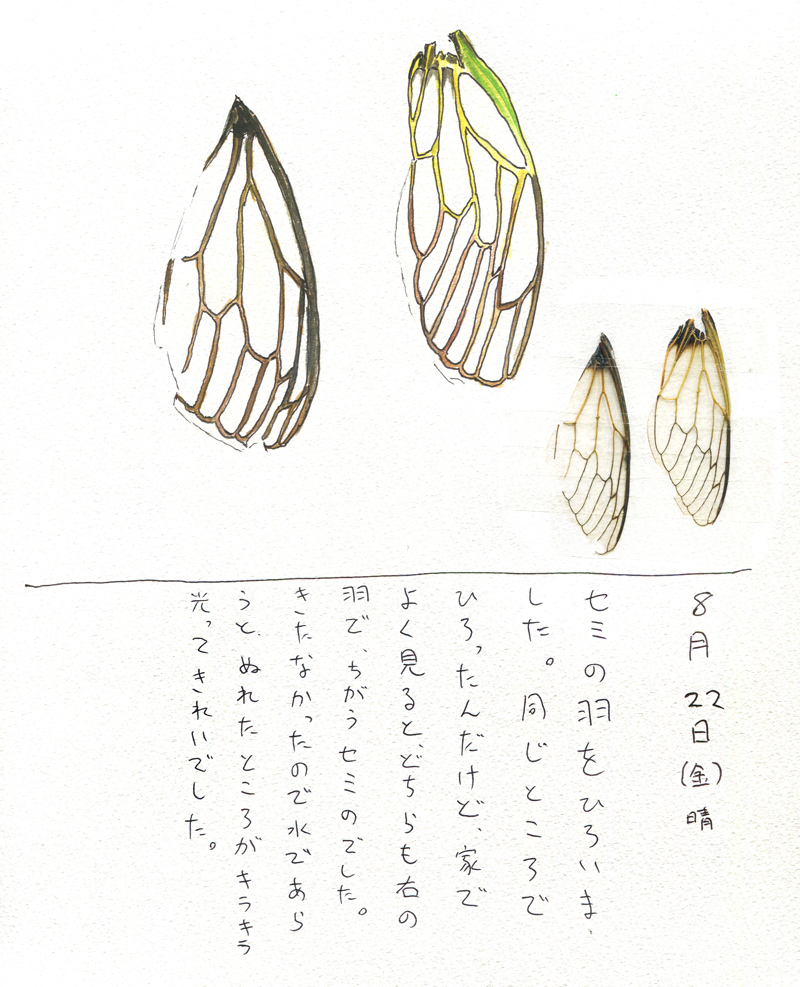 8月22日(金)晴
セミの羽をひろいま、
した。同じところで
ひろったんだけど、家で
よく見ると、どちらも右の
羽で、ちがうセミのでした。
きたなかったので水であら
うと、ぬれたところがキラキラ
光ってきれいでした。